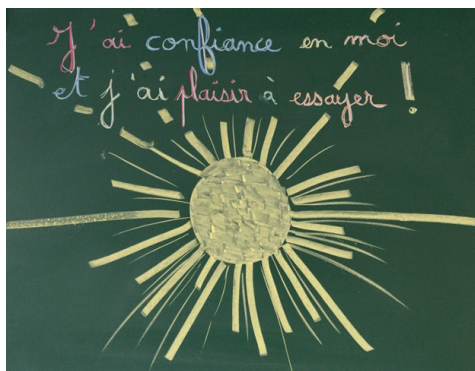 J'ai confiance en moi
et j'ai plaisir à essayer !